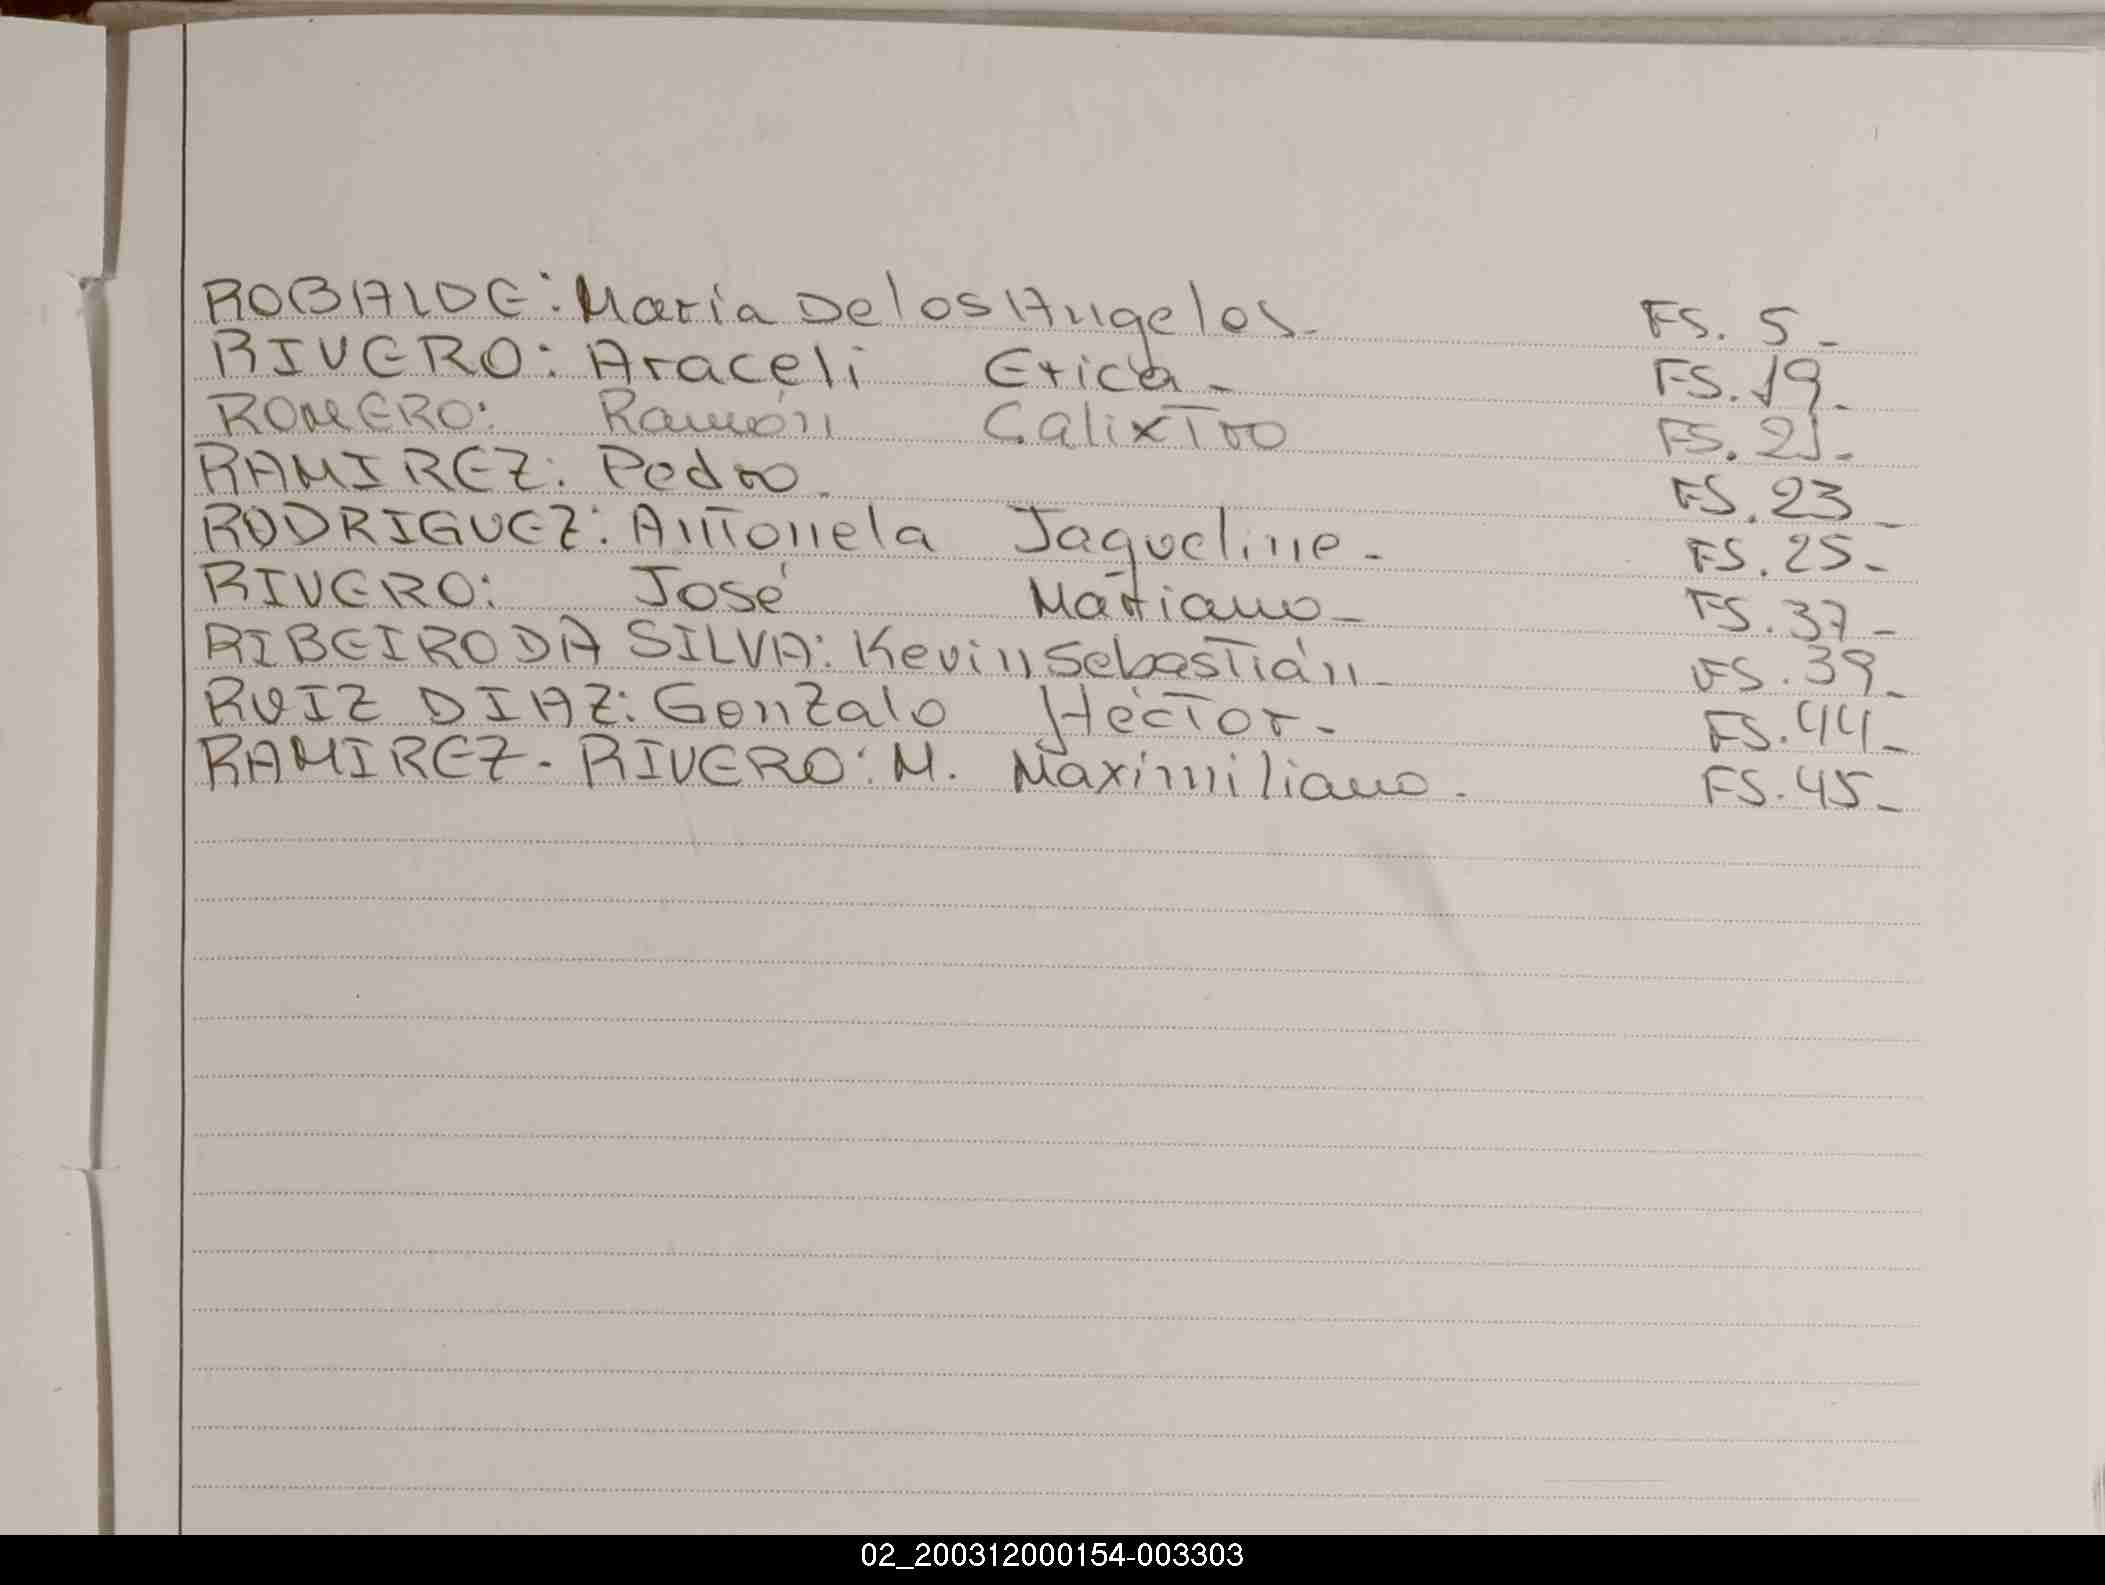 ROBALDE: María Delos Angeles. FS. 5-
RIVERO: Araceli Erica- FS. 19-
ROMERO: Ramón Calixtro FS. 21-
RAMIREZ: Pedro. FS. 23-
RODRIGUEZ: Antonela Jaqueline- FS. 25-
RIVERO: José Mariano- FS. 37-
RIBEIRO DA SILVA: Kevin Sebastián- FS. 39-
RUIZ DIAZ: Gonzalo Héctor- FS. 44-
RAMIREZ-RIVERO: M. Maximiliano. FS. 45-
02_200312000154-003303